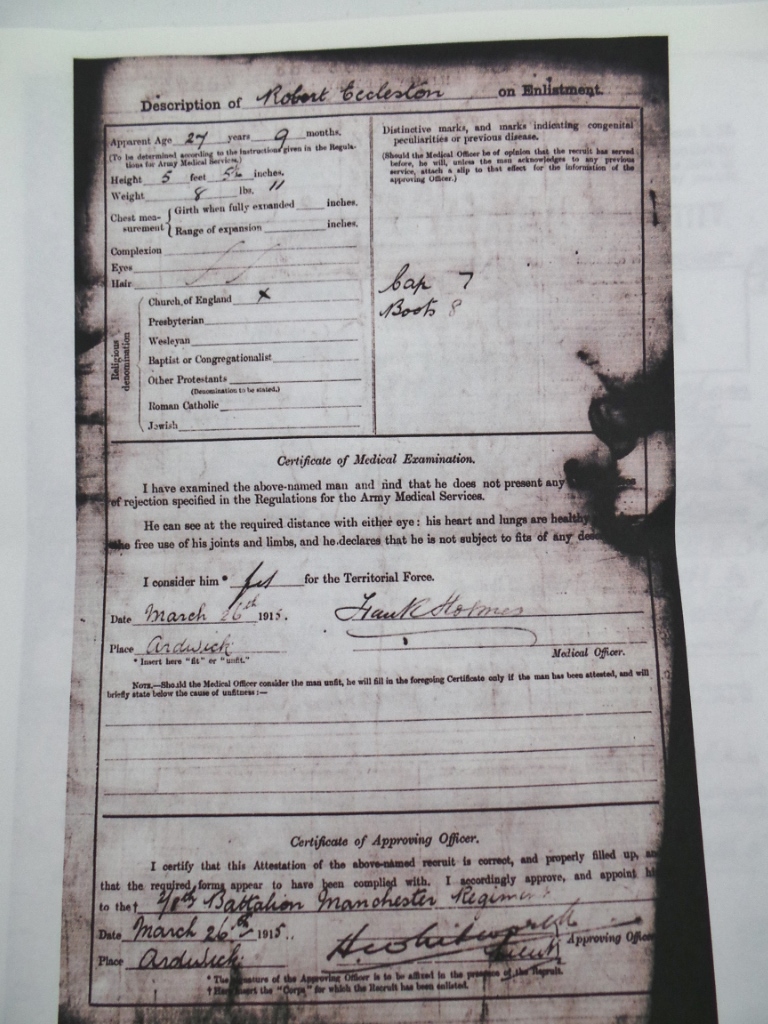 Description of Robert Eccleston on Enlistment.
Apparent Age 27 years 9 months.
(To be determined according to the instructions given in the Regula-
tions for Army Medical Services.)
Height 5 feet inches.
Weight 8 lbs. 11
Chest mea-
surement
Girth when fully expanded inches.
Range of expansion inches.
Complexion
Eyes
Hair
Religious
denomination
Church of England x
Presbyterian
Wesleyan
Baptist or Congregationalist
Other Protestants
(Denomination to be stated.)
Roman Catholic
Jewish
Distinctive marks, and marks indicating congenital
peculiarities or previous disease.
(Should the Medical Officer be of opinion that the recruit has served
before, he will, unless the man acknowledges to any previous
service, attach a slip to that effect for the information of the
approving Officer.)
Cap 7
Boots 8
Certificate of Medical Examination.
I have examined the above-named man and find that he does not present any
of rejection specified in the Regulations for the Army Medical Services.
He can see at the required distance with either eye: his heart and lungs are healthy
the free use of his joints and limbs, and he declares that he is not subject to fits of any
I consider him * fit for the Territorial Force.
Date March 26th 1915. Frank Holmes
Place Ardwick
* Insert here "fit" or "unfit."
Medical Officer.
NOTE.—Should the Medical Officer consider the man unfit, he will fill in the foregoing Certificate only if the man has been attested, and will
briefly state below the cause of unfitness:—
Certificate of Approving Officer.
I certify that this Attestation of the above-named recruit is correct, and properly filled up,
that the required forms appear to have been complied with. I accordingly approve, and appoint
to the† Battalion Manchester Regiment
Date March 26th 1915.
Place Ardwick
Approving Officer
* The signature of the Approving Officer is to be affixed in the presence of the Recruit.
† Here insert the "Corps" for which the Recruit has been enlisted.